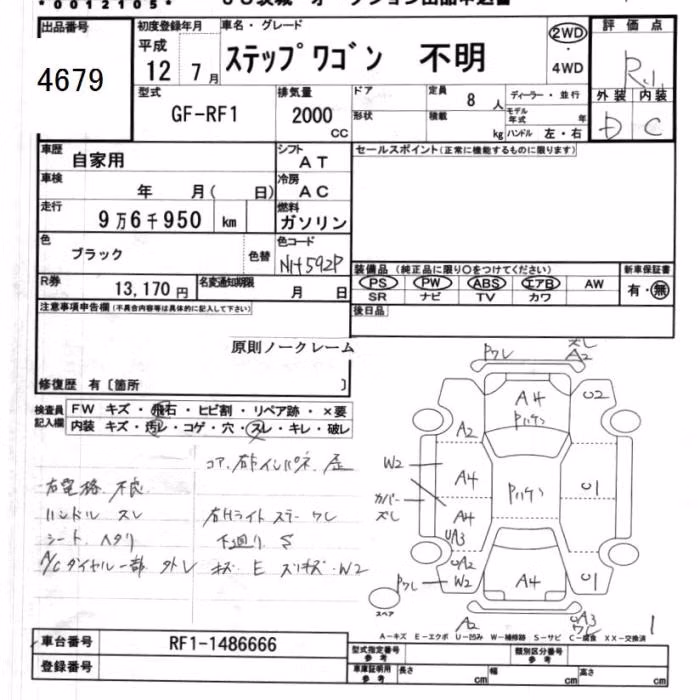 *0012105*
出品番号
4679
初度登録年月
平成
12 7月
車名・グレード
ステップワゴン 不明
2WD
・
4WD
評価点
R.1
外装 内装
D C
型式
GF-RF1
排気量
2000
CC
ドア
形状
定員
8 人
積載
kg
ディーラー・並行
モデル年式 年
ハンドル 左・右
車歴
自家用
シフト
AT
セールスポイント(正常に機能するものに限ります)
車検
年 月( 日)
冷房
AC
走行
9万6千950 km
燃料
ガソリン
色
ブラック
色替
色コード
NH592P
R券
13,170円
名変通知期限
月 日
装備品 (純正品に限り○をつけてください)
PS PW ABS エアB AW
SR ナビ TV カワ
新車保証書
有・無
後日品
注意事項申告欄(不具合内容等は具体的に記入して下さい)
原則ノークレーム
修復歴 有〔箇所 〕
検査員記入欄
FW キズ・飛石・ヒビ割・リペア跡・×要
内装 キズ・汚レ・コゲ・穴・スレ・キレ・破レ
ハンドル スレ
右Hライト ステー ワレ
シート ヘタリ
下廻り S
A/Cダイヤル一部 外レ
キズ・E スリキズ・W2
ワレ
ズレ
A2
A4
U2
A2
W2
A4
カバー
ズレ
A4
UA3
U1
UA2
ワレ
W2
A4
U1
スペア
A2
UA3
ワレ
1
A-キズ E-エクボ U-凹み W-補修跡 S-サビ C-腐食 XX-交換済
車台番号
RF1-1486666
登録番号
型式指定番号
参考
類別区分番号
参考
車庫証明用
参考
長さ cm
幅 cm
高さ cm